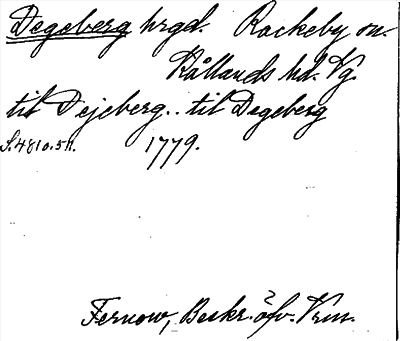 Degeberg hrgd. Rackeby sn.
Kållands hd. Vg.
til Dejeberg.. til Degeberg
S. 481 o. 511. 1779.
Fernow, Beskr. öfv. Vrm.